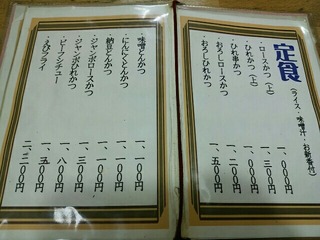 定食
(ライス・味噌汁・お新香付)
・ロースかつ(上)
・ひれかつ(上)
・ひれ串かつ
・おろしロースかつ
・おろしひれかつ
一、000円
一、三00円
一、二00円
一、五00円
・味噌とんかつ 一、一00円
・にんにくとんかつ 一、一00円
・納豆とんかつ 一、一00円
・ジャンボロースかつ 一、三00円
・ジャンボひれかつ 一、八00円
・ビーフシチュー 一、五00円
・えびフライ 二、三00円